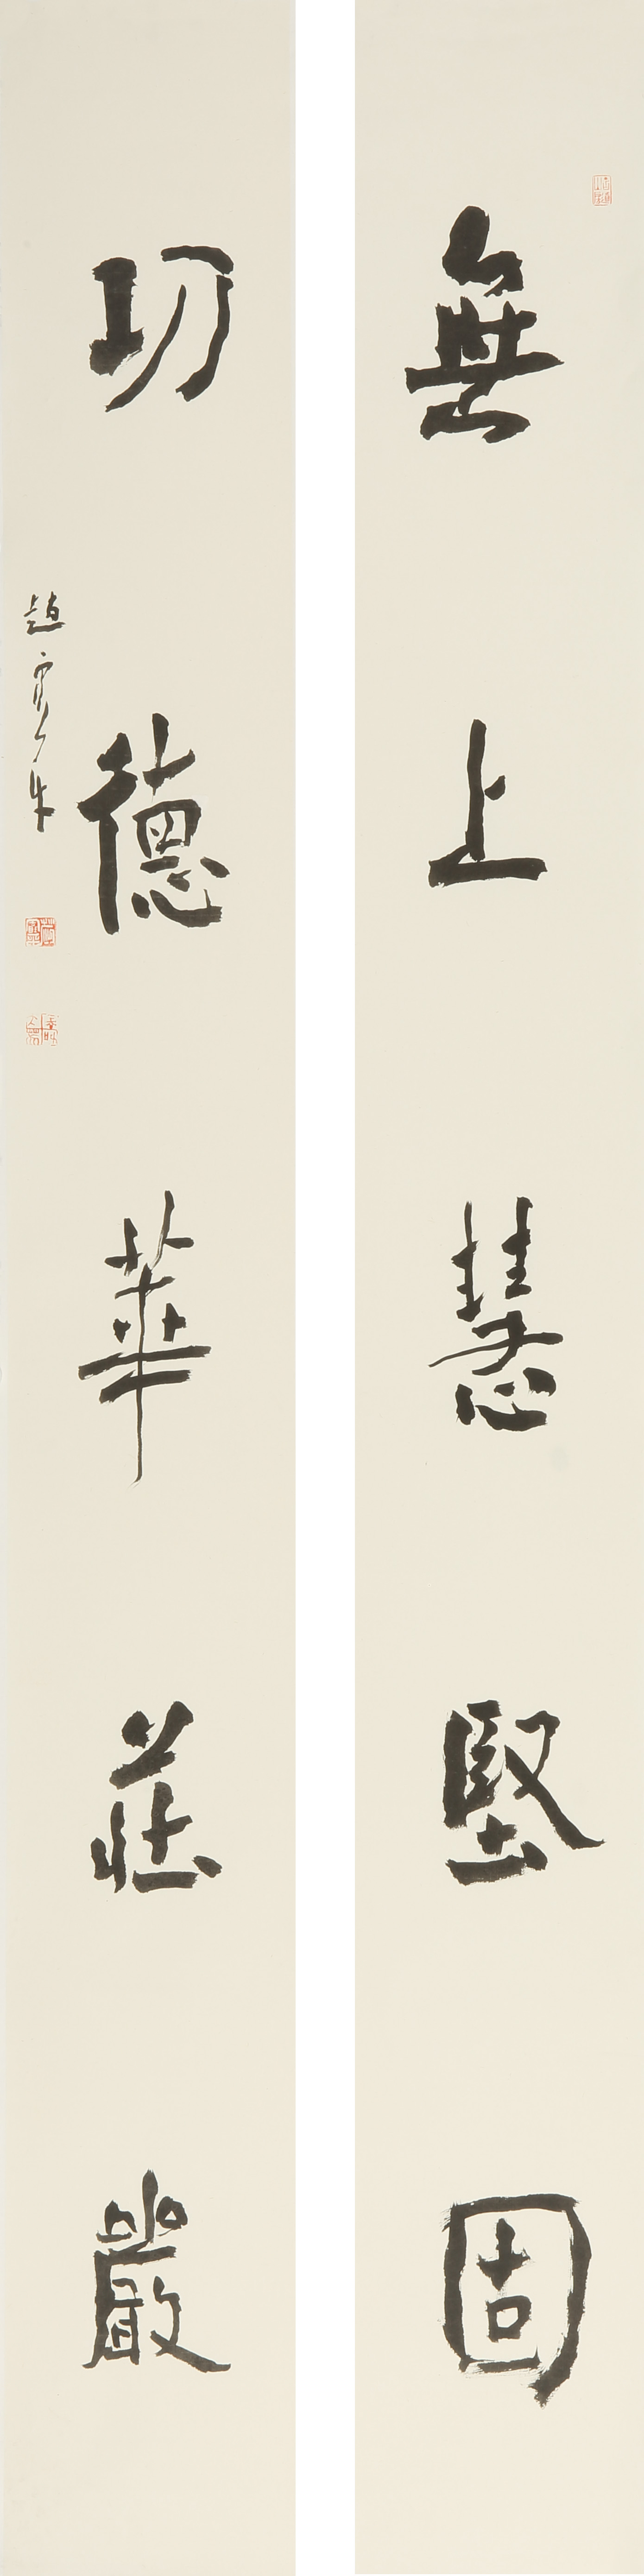 無上慧堅固
功德華莊嚴
趙